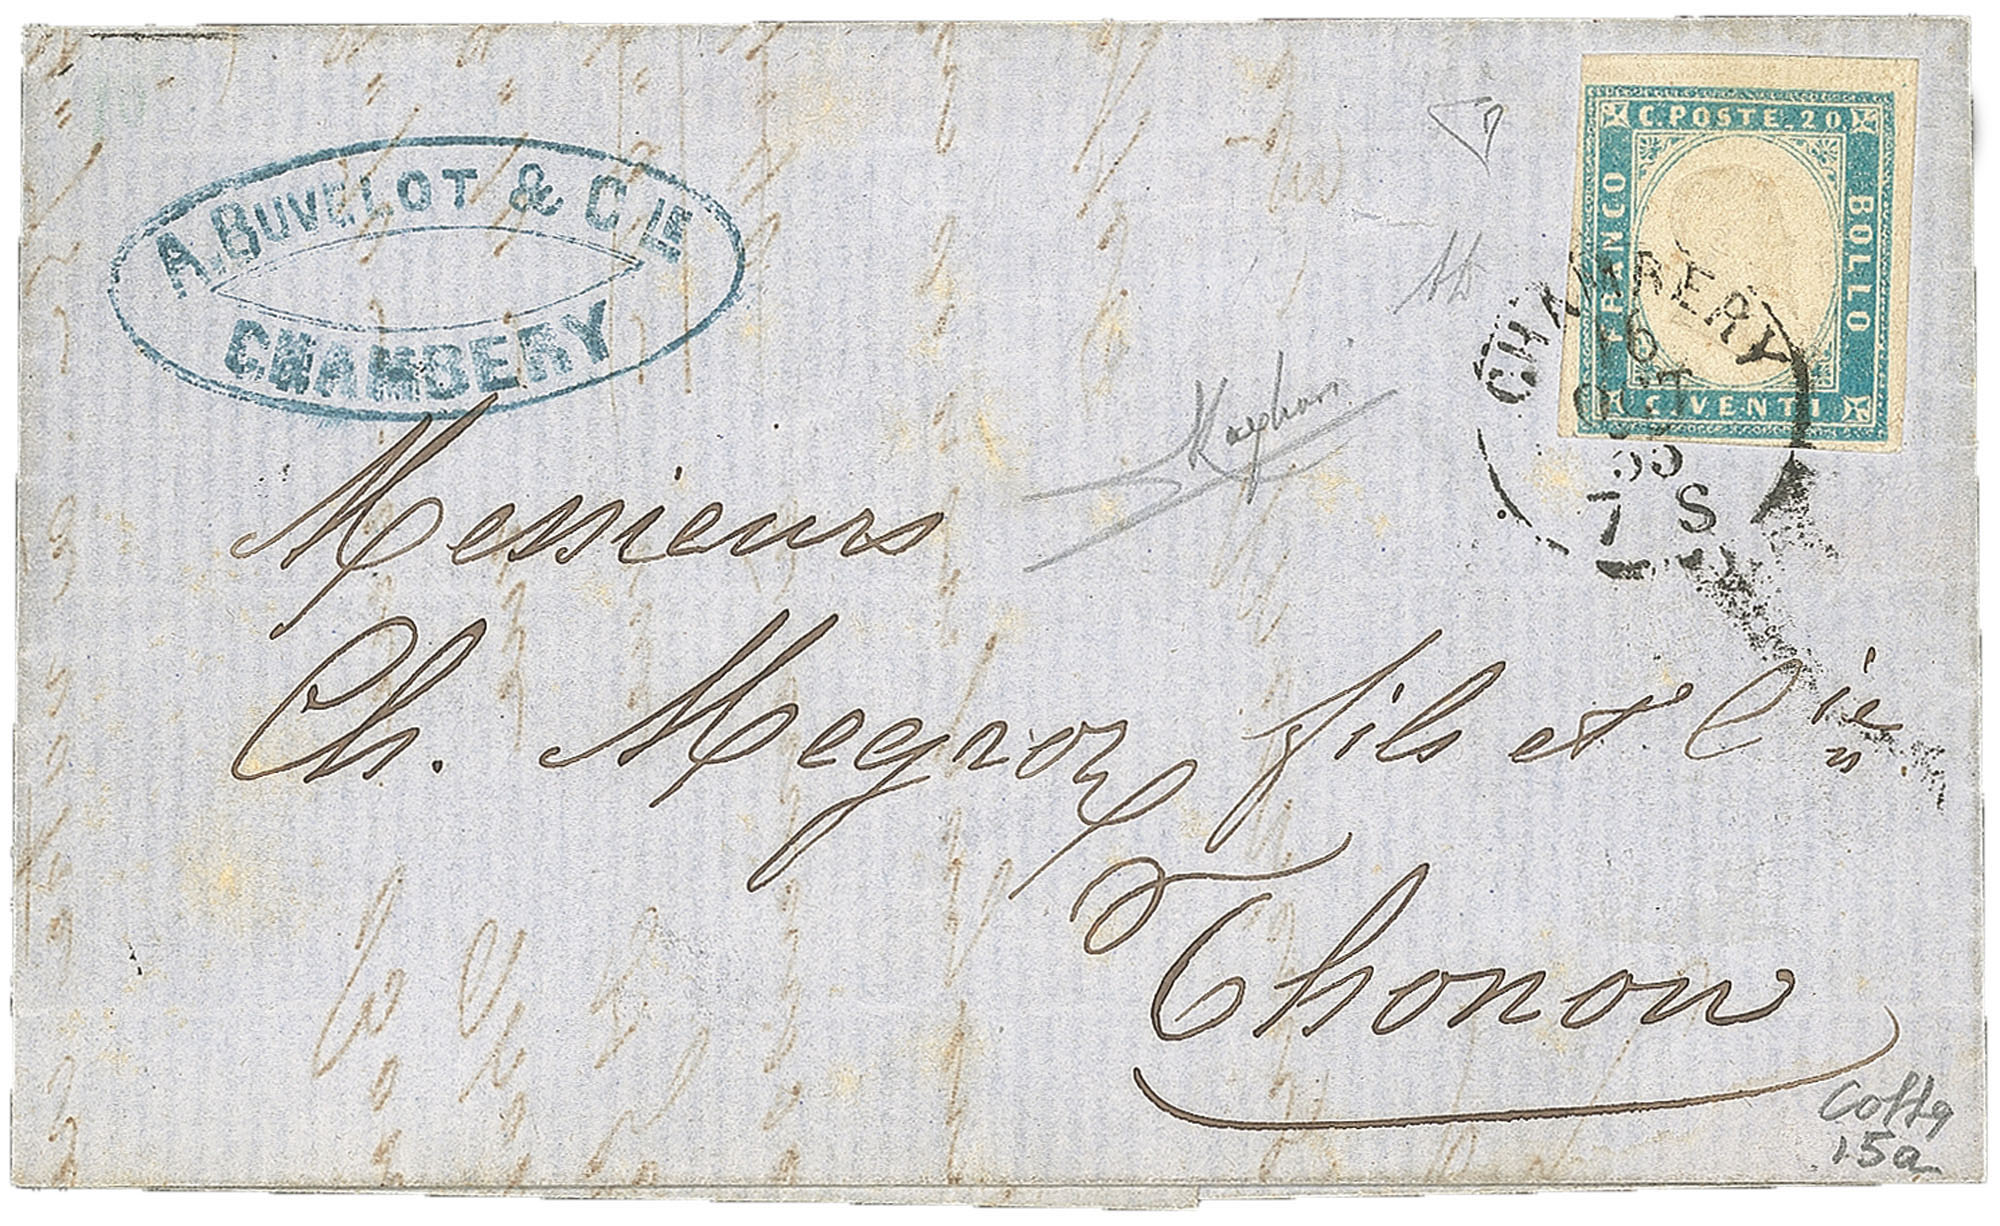 A. BUVELOT & CIE
CHAMBERY
C. POSTE. 20
FRANCO
BOLLO
C. VENTI
CHAMBERY
16
OCT
55
7 S
Messieurs
Ch. Megroz fils et Cie.
Thonon
15a